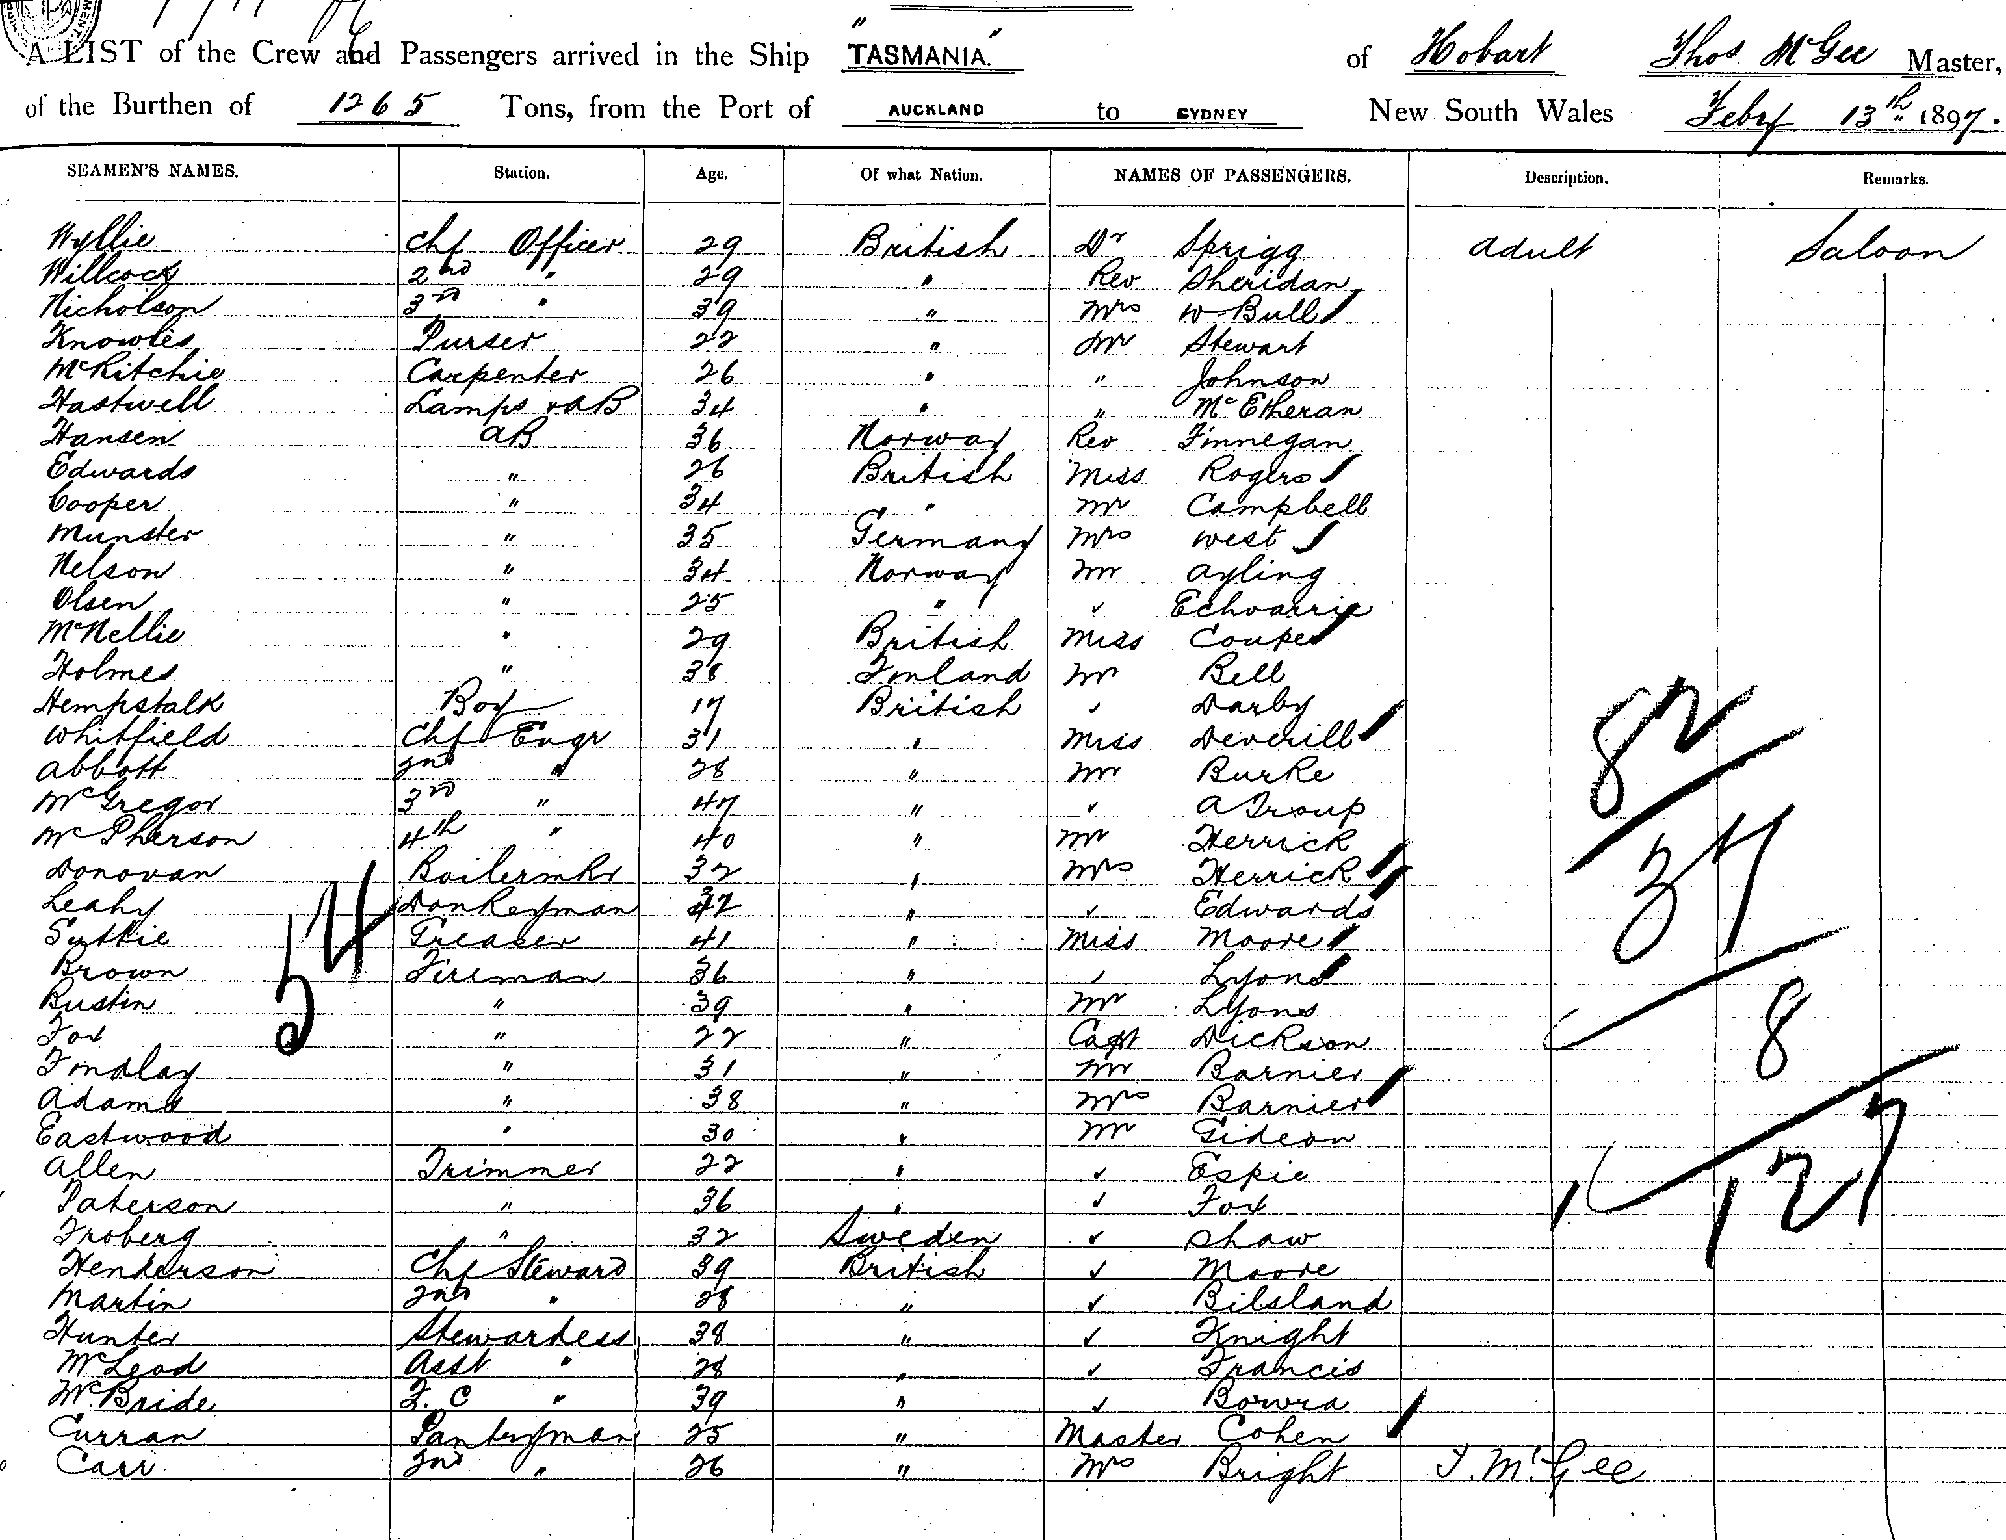 A LIST of the Crew and Passengers arrived in the Ship "TASMANIA." of Hobart Thos. McGee Master,
of the Burthen of 1265 Tons, from the Port of AUCKLAND to SYDNEY New South Wales Feby 13th 1897.
SEAMEN'S NAMES. Station. Age. Of what Nation. NAMES OF PASSENGERS. Description. Remarks.
Wyllie Chf Officer 29 British Dr Sprigg adult Saloon
Willcock 2nd " 29 " Rev Sheridan
Nicholson 3rd " 39 " Mrs W Bull
Knowles Purser 22 " Mr Stewart
McRitchie Carpenter 26 " " Johnson
Hastwell Lamps & AB 34 " " McEtheran
Hansen AB 36 Norway Rev Finnegan
Edwards " 26 British Miss Rogers
Cooper " 34 " Mr Campbell
Munster " 35 Germany Mrs West
Nelson " 34 Norway Mr Ayling
Olsen " 25 " " Echvarria
McNellie " 29 British Miss Couper
Holmes " 38 Finland Mr Bell
Hempstalk Boy 17 British " Darby
Whitfield Chf Engr 31 " Miss Deverill
Abbott 2nd " 28 " Mr Burke
McGregor 3rd " 47 " " A Troup
McPherson 4th " 40 " Mr Herrick
Donovan Boilermkr 32 " Mrs Herrick
Leahy Donkeyman 42 " " Edwards
Syttie Greaser 41 " Miss Moore
Brown Fireman 36 " " Lyons
Bustin " 39 " Mr Lyons
Fox " 22 " Capt Dickson
Findlay " 31 " Mr Barnier
Adams " 38 " Mrs Barnier
Eastwood " 30 " Mr Gideon
Allen Trimmer 22 " " Espie
Paterson " 36 " " Fox
Froberg " 32 Sweden " Shaw
Henderson Chf Steward 39 British " Moore
Martin 2nd " 28 " " Bilsland
Hunter Stewardess 38 " " Knight
McLeod Asst " 28 " " Francis
McBride F.C " 39 " " Bowra
Curran Pantryman 25 " Master Cohen
Carr 2nd " 26 " Mrs Bright T. McGee
54
82
37
8
127